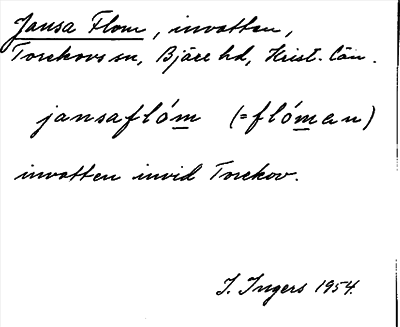 Jansa Flom, invatten,
Torekovs sn, Bjäre hd, Krist. län.
jansaflóm (=flóman)
invatten invid Torekov.
I. Ingers 1954.